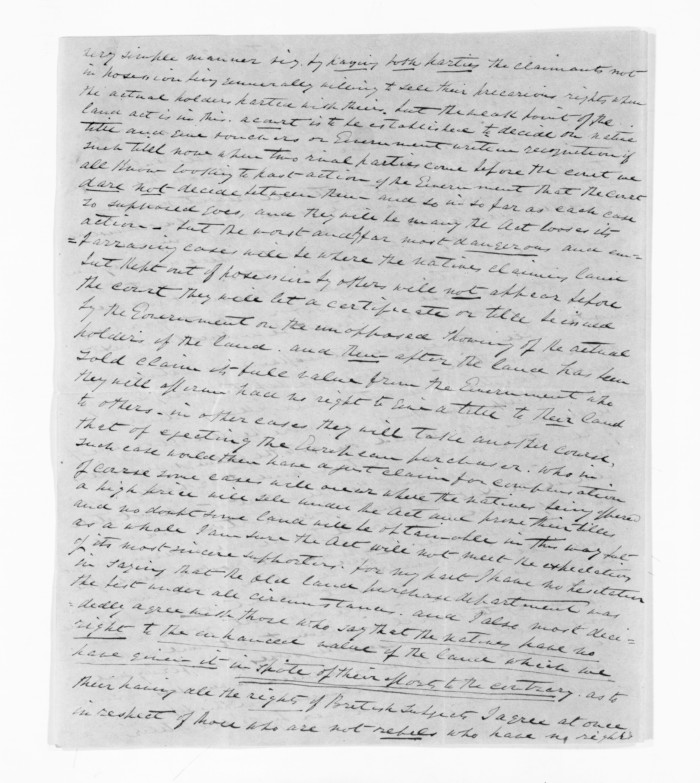 very simple manner viz. by paying both parties the claimants not
in possession being generally willing to sell their precarious rights when
the actual holders parted with theirs. but the weak point of the
land act is in this. a court is to be established to decide on native
title and give vouchers or Government written recognition of
such till now when two rival parties come before the court we
all know looking to past action of the Government that the Court
dare not decide between them and so in so far as each case
so supposed goes, and they will be many the Act looses its
action. but the worst and far most dangerous and em=
=barrasing cases will be where the natives claiming land
but kept out of possession by others will not appear before
the court they will let a certificate or title be issued
by the Government on the unopposed showing of the actual
holders of the land. and then after the land has been
sold claim its full value from the Government who
they will affirm had no right to give a title to their land
to others. in other cases they will take another course,
that of ejecting the European purchaser. who in
such case would then have a just claim for compensation
of course some cases will occur where the natives being offered
a high price will sell under the Act and prove their titles
and no doubt some land will be obtainable in this way but
as a whole I am sure the Act will not meet the expectations
of its most sincere supporters. for my part I have no hesitation
in saying that the old land purchase department was
the best under all circumstance. and I also most deci=
=dedly agree with those who say that the natives have no
right to the enhanced value of the land which we
have given it in spite of their efforts to the contrary. as to
their having all the rights of British subjects I agree at once
in respect of those who are not rebels who have no rights